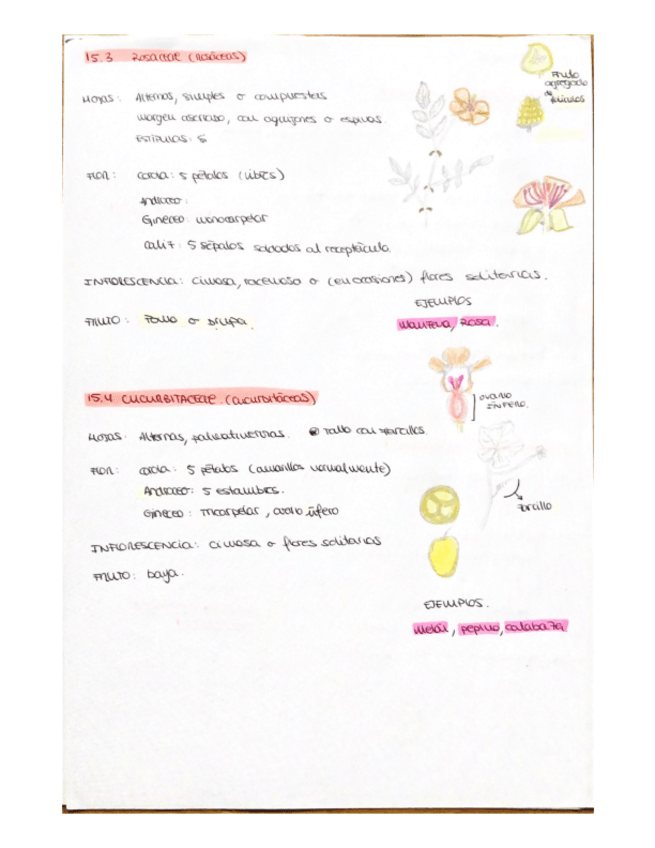 15.3 Rosaceae (Rosáceas)
Fruto
agregado
de
folículos
HOJAS: Alternas, simples o compuestas
margen aserrado, con aguijones o espinas.
ESTÍPULAS: 5
FLOR: corola: 5 pétalos (libres)
Androceo:
Gineceo: monocarpelar
caliz: 5 sépalos soldados al receptáculo.
INFLORESCENCIA: cimosa, racemosa o (en ocasiones) flores solitarias.
EJEMPLOS
FRUTO: Pomo o drupa.
Manzana, Rosa.
15.4 CUCURBITACEAE. (cucurbitáceas)
OVARIO
ÍNFERO.
HOJAS: Alternas, palmatinervias. Tallo con zarcillos.
FLOR: corola: 5 pétalos (amarillos normalmente)
Androceo: 5 estambres.
Gineceo: Tricarpelar, ovario ínfero
zarcillo
INFLORESCENCIA: cimosa o flores solitarias
FRUTO: baya.
EJEMPLOS.
melón, pepino, calabaza.